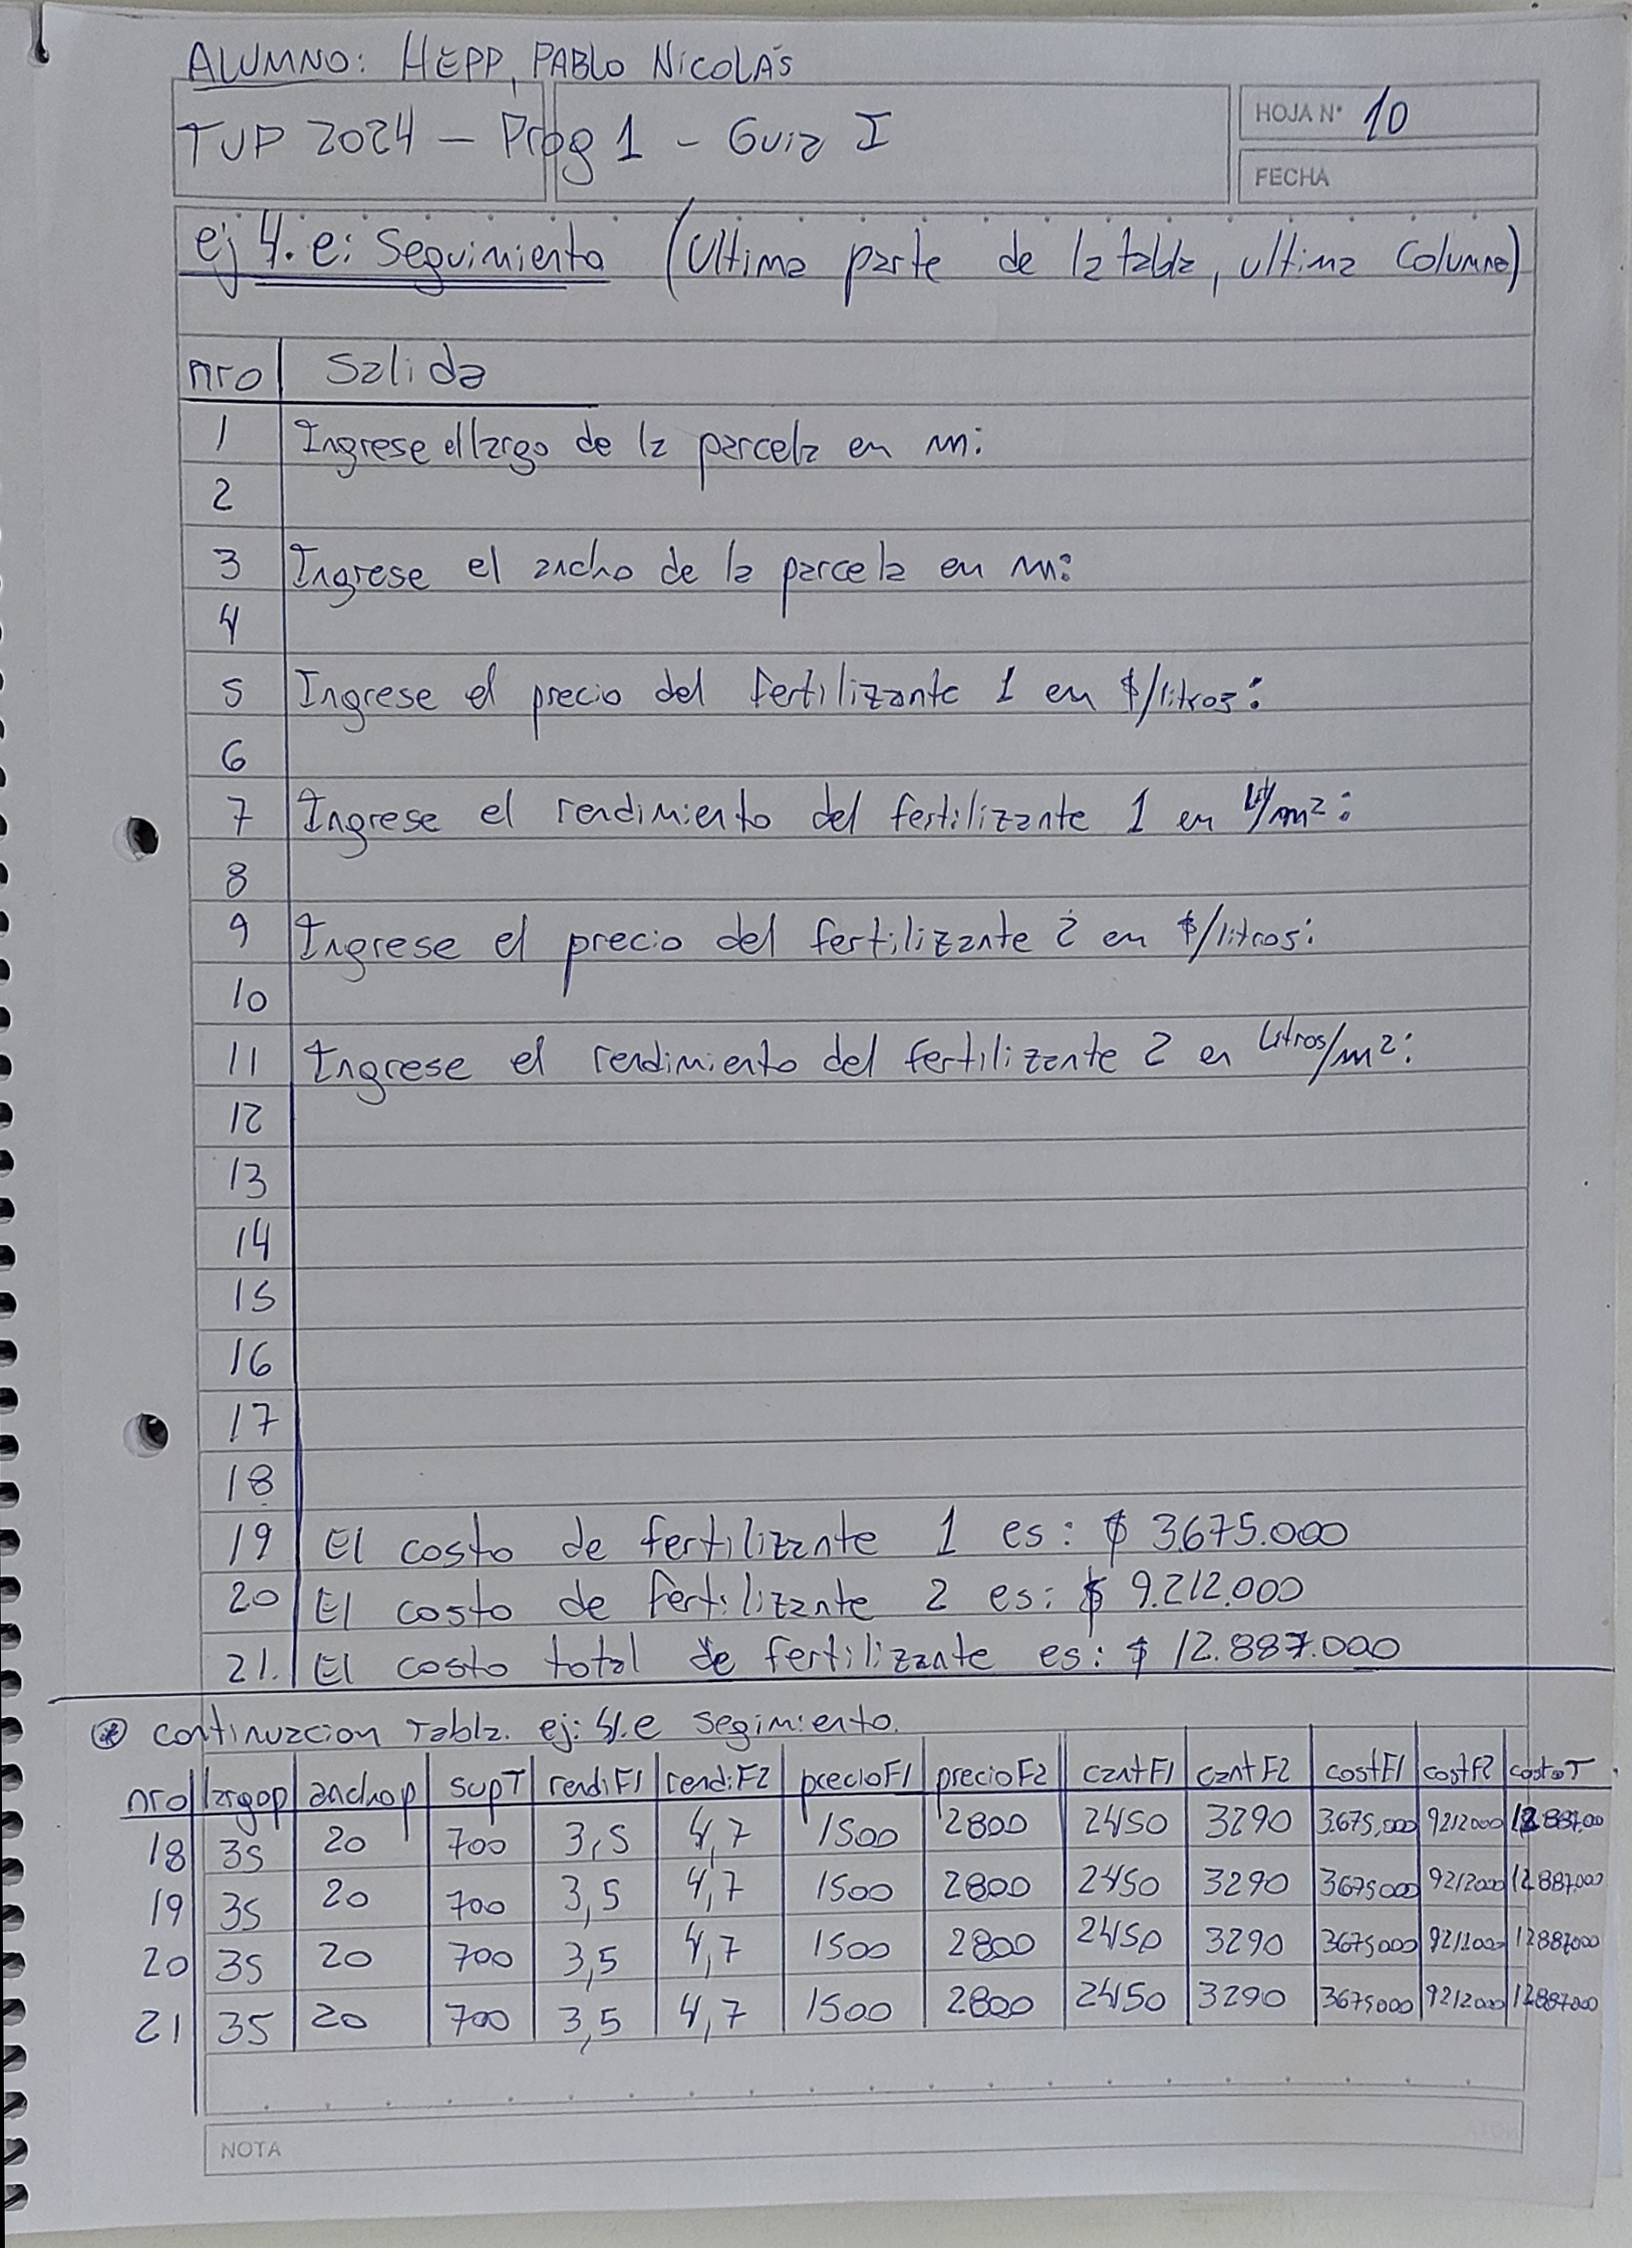 ALUMNO: HEPP, PABLO NICOLÁS
TUP 2024 - Prog 1 - Guia I
HOJA N° 10
FECHA
ej 4.e: Seguimiento (Ultima parte de la tabla, ultima columna)
nro Salida
1 Ingrese el largo de la parcela en m:
2
3 Ingrese el ancho de la parcela en m:
4
5 Ingrese el precio del fertilizante 1 en $/litros:
6
7 Ingrese el rendimiento del fertilizante 1 en lit/m2:
8
9 Ingrese el precio del fertilizante 2 en $/litros:
10
11 Ingrese el rendimiento del fertilizante 2 en Litros/m2:
12
13
14
15
16
17
18
19 El costo de fertilizante 1 es: $ 3.675.000
20 El costo de fertilizante 2 es: $ 9.212.000
21. El costo total de fertilizante es: $ 12.887.000
* continuacion Tabla. ej: 4.e segimiento.
nro largop anchop supT rendiF1 rendiF2 precioF1 precioF2 cantF1 cantF2 costF1 costF2 costoT
18 35 20 700 3,5 4,7 1500 2800 2450 3290 3.675,000 9212000 12.887.00
19 35 20 700 3,5 4,7 1500 2800 2450 3290 3675000 9212000 12.887.000
20 35 20 700 3,5 4,7 1500 2800 2450 3290 3675000 9212000 12887000
21 35 20 700 3,5 4,7 1500 2800 2450 3290 3675000 9212000 12887000
NOTA